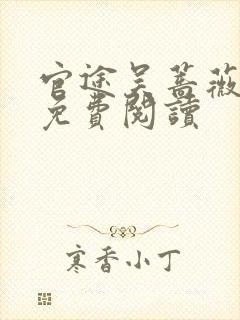 官途吴蔷薇
免費閱讀
寒香小丁